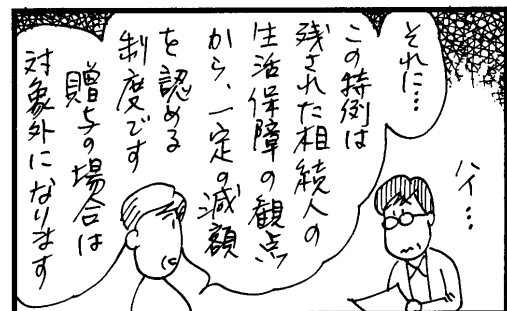 それに…
この特例は
残された相続人の
生活保障の観点
から、一定の減額
を認める
制度です
贈与の場合は
対象外になります
ハイ…